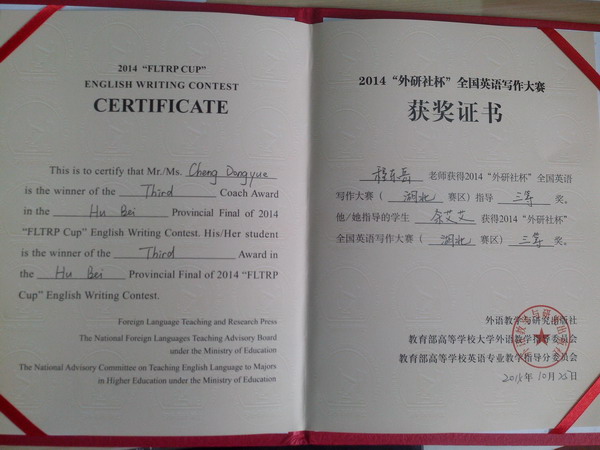 2014 “FLTRP CUP”
ENGLISH WRITING CONTEST
CERTIFICATE
This is to certify that Mr./Ms. Cheng Dongyue
is the winner of the Third Coach Award
in the Hu Bei Provincial Final of 2014
“FLTRP Cup” English Writing Contest. His/Her student
is the winner of the Third Award in
the Hu Bei Provincial Final of 2014 “FLTRP
Cup” English Writing Contest.
Foreign Language Teaching and Research Press
The National Foreign Languages Teaching Advisory Board
under the Ministry of Education
The National Advisory Committee on Teaching English Language to Majors
in Higher Education under the Ministry of Education
2014 “外研社杯” 全国英语写作大赛
获奖证书
程东岳 老师获得2014 “外研社杯” 全国英语
写作大赛（ 湖北 赛区）指导 三等 奖。
他/她指导的学生 余艾艾 获得2014 “外研社杯”
全国英语写作大赛（ 湖北 赛区） 三等 奖。
外语教学与研究出版社
教育部高等学校大学外语教学指导委员会
教育部高等学校英语专业教学指导分委员会
2015年10月25日